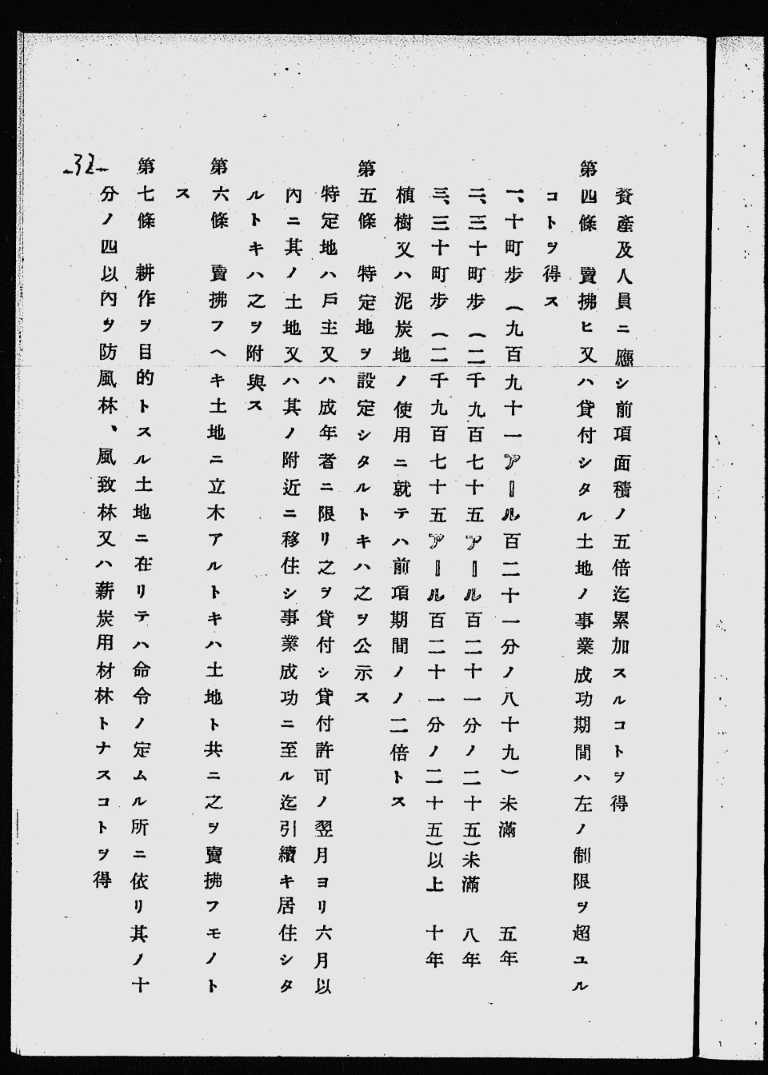 資產及人員ニ應シ前項面積ノ五倍迄累加スルコトヲ得
第四條　賣拂ヒ又ハ貸付シタル土地ノ事業成功期間ハ左ノ制限ヲ超ユル
コトヲ得ス
一、十町步（九百九十一アール百二十一分ノ八十九）未滿　五年
二、三十町步（二千九百七十五アール百二十一分ノ二十五）未滿　八年
三、三十町步（二千九百七十五アール百二十一分ノ二十五）以上　十年
植樹又ハ泥炭地ノ使用ニ就テハ前項期間ノノ二倍トス
第五條　特定地ヲ設定シタルトキハ之ヲ公示ス
特定地ハ戶主又ハ成年者ニ限リ之ヲ貸付シ貸付許可ノ翌月ヨリ六月以
內ニ其ノ土地又ハ其ノ附近ニ移住シ事業成功ニ至ル迄引續キ居住シタ
ルトキハ之ヲ附與ス
第六條　賣拂フヘキ土地ニ立木アルトキハ土地ト共ニ之ヲ賣拂フモノト
ス
第七條　耕作ヲ目的トスル土地ニ在リテハ命令ノ定ムル所ニ依リ其ノ十
分ノ四以內ヲ防風林、風致林又ハ薪炭用材林トナスコトヲ得
-32-